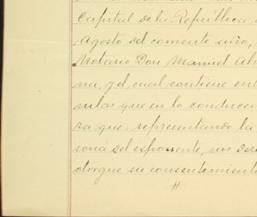 Capital de la República
Agosto del corriente año,
Notario Don Manuel
na, y el cual contiene
que en lo conducen
ra que representando la
sona del exponente, un
otorgue su consentimiento